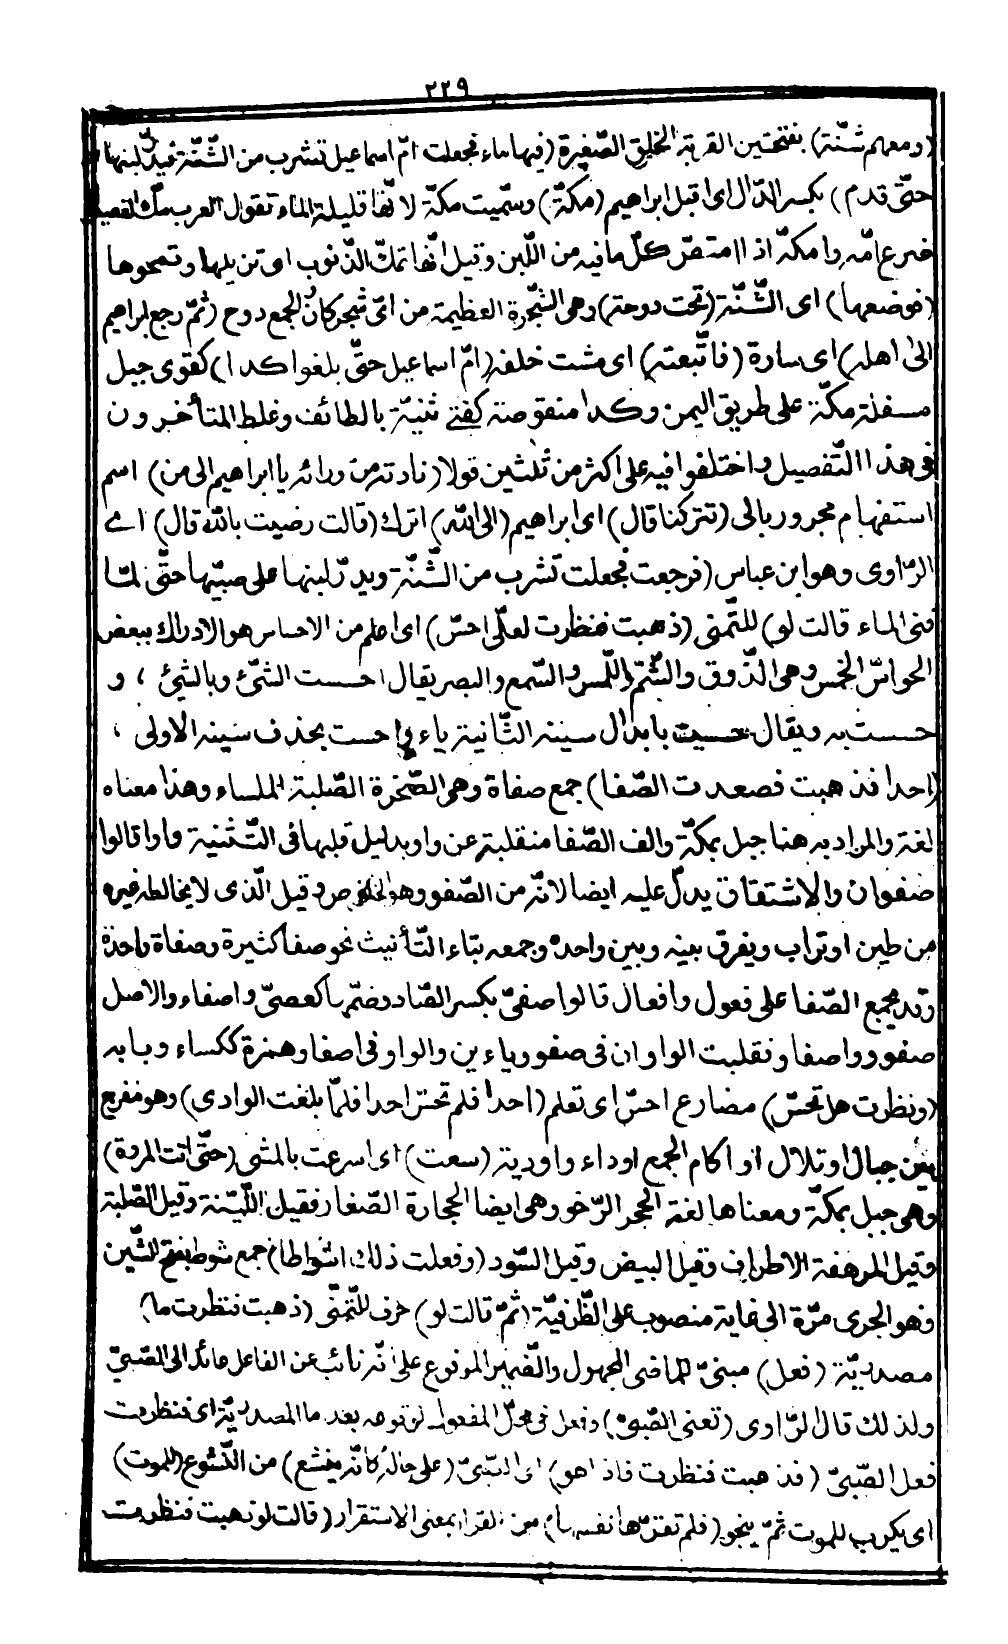 ٢٢٩
(ومعهم شنّة) بفتحتين القربة الخلق الصّغيرة (فيها ماء فجعلت امّ اسماعيل تشرب من الشّنّة فيدرّ لبنها
حتّى قدم) بكسر الدّال اى اقبل ابراهيم (مكّة) وسمّيت مكّة لانّها قليلة الماء تقول العرب مكّ الفصيل
ضرع امّه وامكّه اذا امتصّ كلّ ما فيه من اللّبن وقيل انّها تمكّ الذّنوب اى تزيلها وتمحوها
(فوضعها) اى الشّنّة (تحت دوحة) وهى الشّجرة العظيمة من اىّ شجر كان والجمع دوح (ثمّ رجع ابراهيم
الى اهله) اى سارة (فاتّبعته) اى مشت خلفه (امّ اسماعيل حتّى بلغوا كدا) كقوى جبل
مسفلة مكّة على طريق اليمن وكدا منقوصة كفتى ثنيّة بالطائف وغلط المتأخرون
فى هذا التّفصيل واختلفوا فيه على اكثر من ثلثين قولا (نادته من ورائه يا ابراهيم الى من) اسم
استفهام مجرور بالى (تتركنا قال) اى ابراهيم (الى اللّه) اترك (قالت رضيت باللّه قال) اے
الرّاوى وهو ابن عباس (فرجعت فجعلت تشرب من الشّنّة ويدرّ لبنها على صبيّها حتّى لمّا
فنى الماء قالت لو) للتّمنى (ذهبت فنظرت لعلّى احسّ) اى اعلم من الاحساس هو الادراك ببعض
الحواسّ الخمس وهى الذّوق والشّمّ واللّمس والسّمع والبصر يقال احست الشئ وبالشئ ، و
حسست به ويقال حسيت بابدال سينه الثّانية ياء واحست بحذف سينه الاولى ،
(احدا فذهبت فصعدت الصّفا) جمع صفاة وهى الصّخرة الصّلبة الملساء وهذا معناه
لغة والمراد به هنا جبل بمكّة والف الصّفا منقلبة عن واو بدليل قلبها فى التّثنية واوا قالوا
صفوان والاشتقاق يدلّ عليه ايضا لانّه من الصّفو وهو الخلوص وقيل الّذى لا يخالطه غيره
من طين او تراب ويفرق بينه وبين واحده وجمعه بتاء التّأنيث نحو صفا كثيرة وصفاة واحدة
وقد يجمع الصّفا على فعول وافعال قالوا صفىّ بكسر الصّاد وضمّها كعصىّ واصفاء والاصل
صفوو واصفاو فقلبت الواوان فى صفوو ياءين والواو فى اصفاو همزة ككساء وبابه
(ونظرت هل تحسّ) مضارع احسّ اى تعلم (احدا فلم تحسّ احدا فلمّا بلغت الوادى) وهو مفرج
بين جبال او تلال او اكام الجمع اوداء واودية (سعت) اى اسرعت بالمشى (حتّى اتت المروة)
وهى جبل بمكّة ومعناها لغة الحجر الرّخو وهى ايضا الحجارة الصّغار فقيل اللّيّنة وقيل الصّلبة
وقيل المرهفة الاطراف وقيل البيض وقيل السّود (وفعلت ذلك اشواطا) جمع شوط بفتح الشّين
وهو الجرى مرّة الى غاية منصوب على الظّرفيّة (ثمّ قالت لو) حرف للتّمنّى (ذهبت فنظرت ما)
مصدريّة (فعل) مبنىّ للماضى المجهول والضّمير المرفوع على انّه نائب عن الفاعل عائد الى الصّبىّ
ولذلك قال الرّاوى (تعنى الصّبىّ) وفعل فى محلّ المفعول لوقوعه بعد ما المصدريّة اى فنظرت
فعل الصّبىّ (فذهبت فنظرت فاذا هو) اى الصّبىّ (على حاله كانّه ينشغ) من النّشوغ (للموت)
اى يكرب للموت ثمّ ينجو (فلم تقرّها نفسها) من القرار بمعنى الاستقرار (قالت لو ذهبت فنظرت